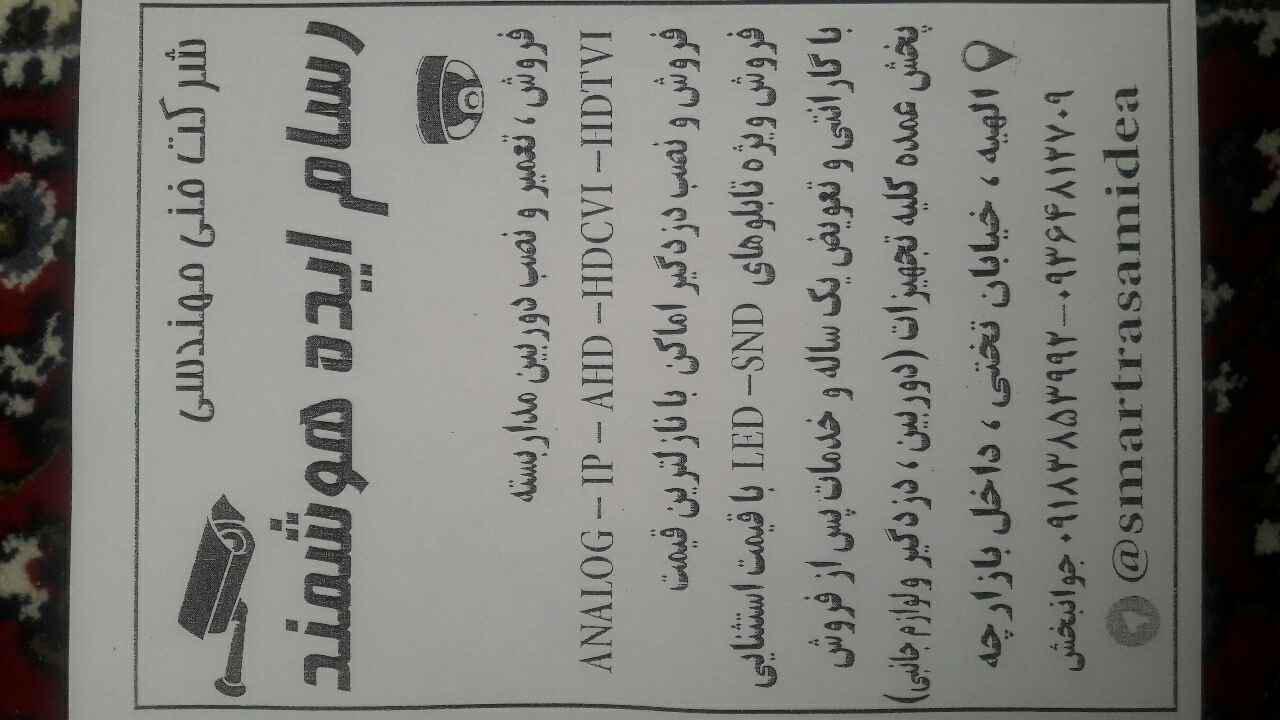 شرکت فنی مهندسی
رسام ایده هوشمند
فروش ، تعمیر و نصب دوربین مداربسته
ANALOG – IP – AHD –HDCVI –HDTVI
فروش و نصب دزدگیر اماکن با نازلترین قیمت
فروش ویژه تابلوهای LED –SND با قیمت استثنایی
با گارانتی و تعویض یک ساله و خدمات پس از فروش
پخش عمده کلیه تجهیزات (دوربین ، دزدگیر و لوازم جانبی)
الهیه ، خیابان تختی ، داخل بازارچه
۰۹۱۸۳۸۵۳۹۹۲ – ۰۹۳۶۴۸۱۲۷۰۹ جوانبخش
@smartrasamidea